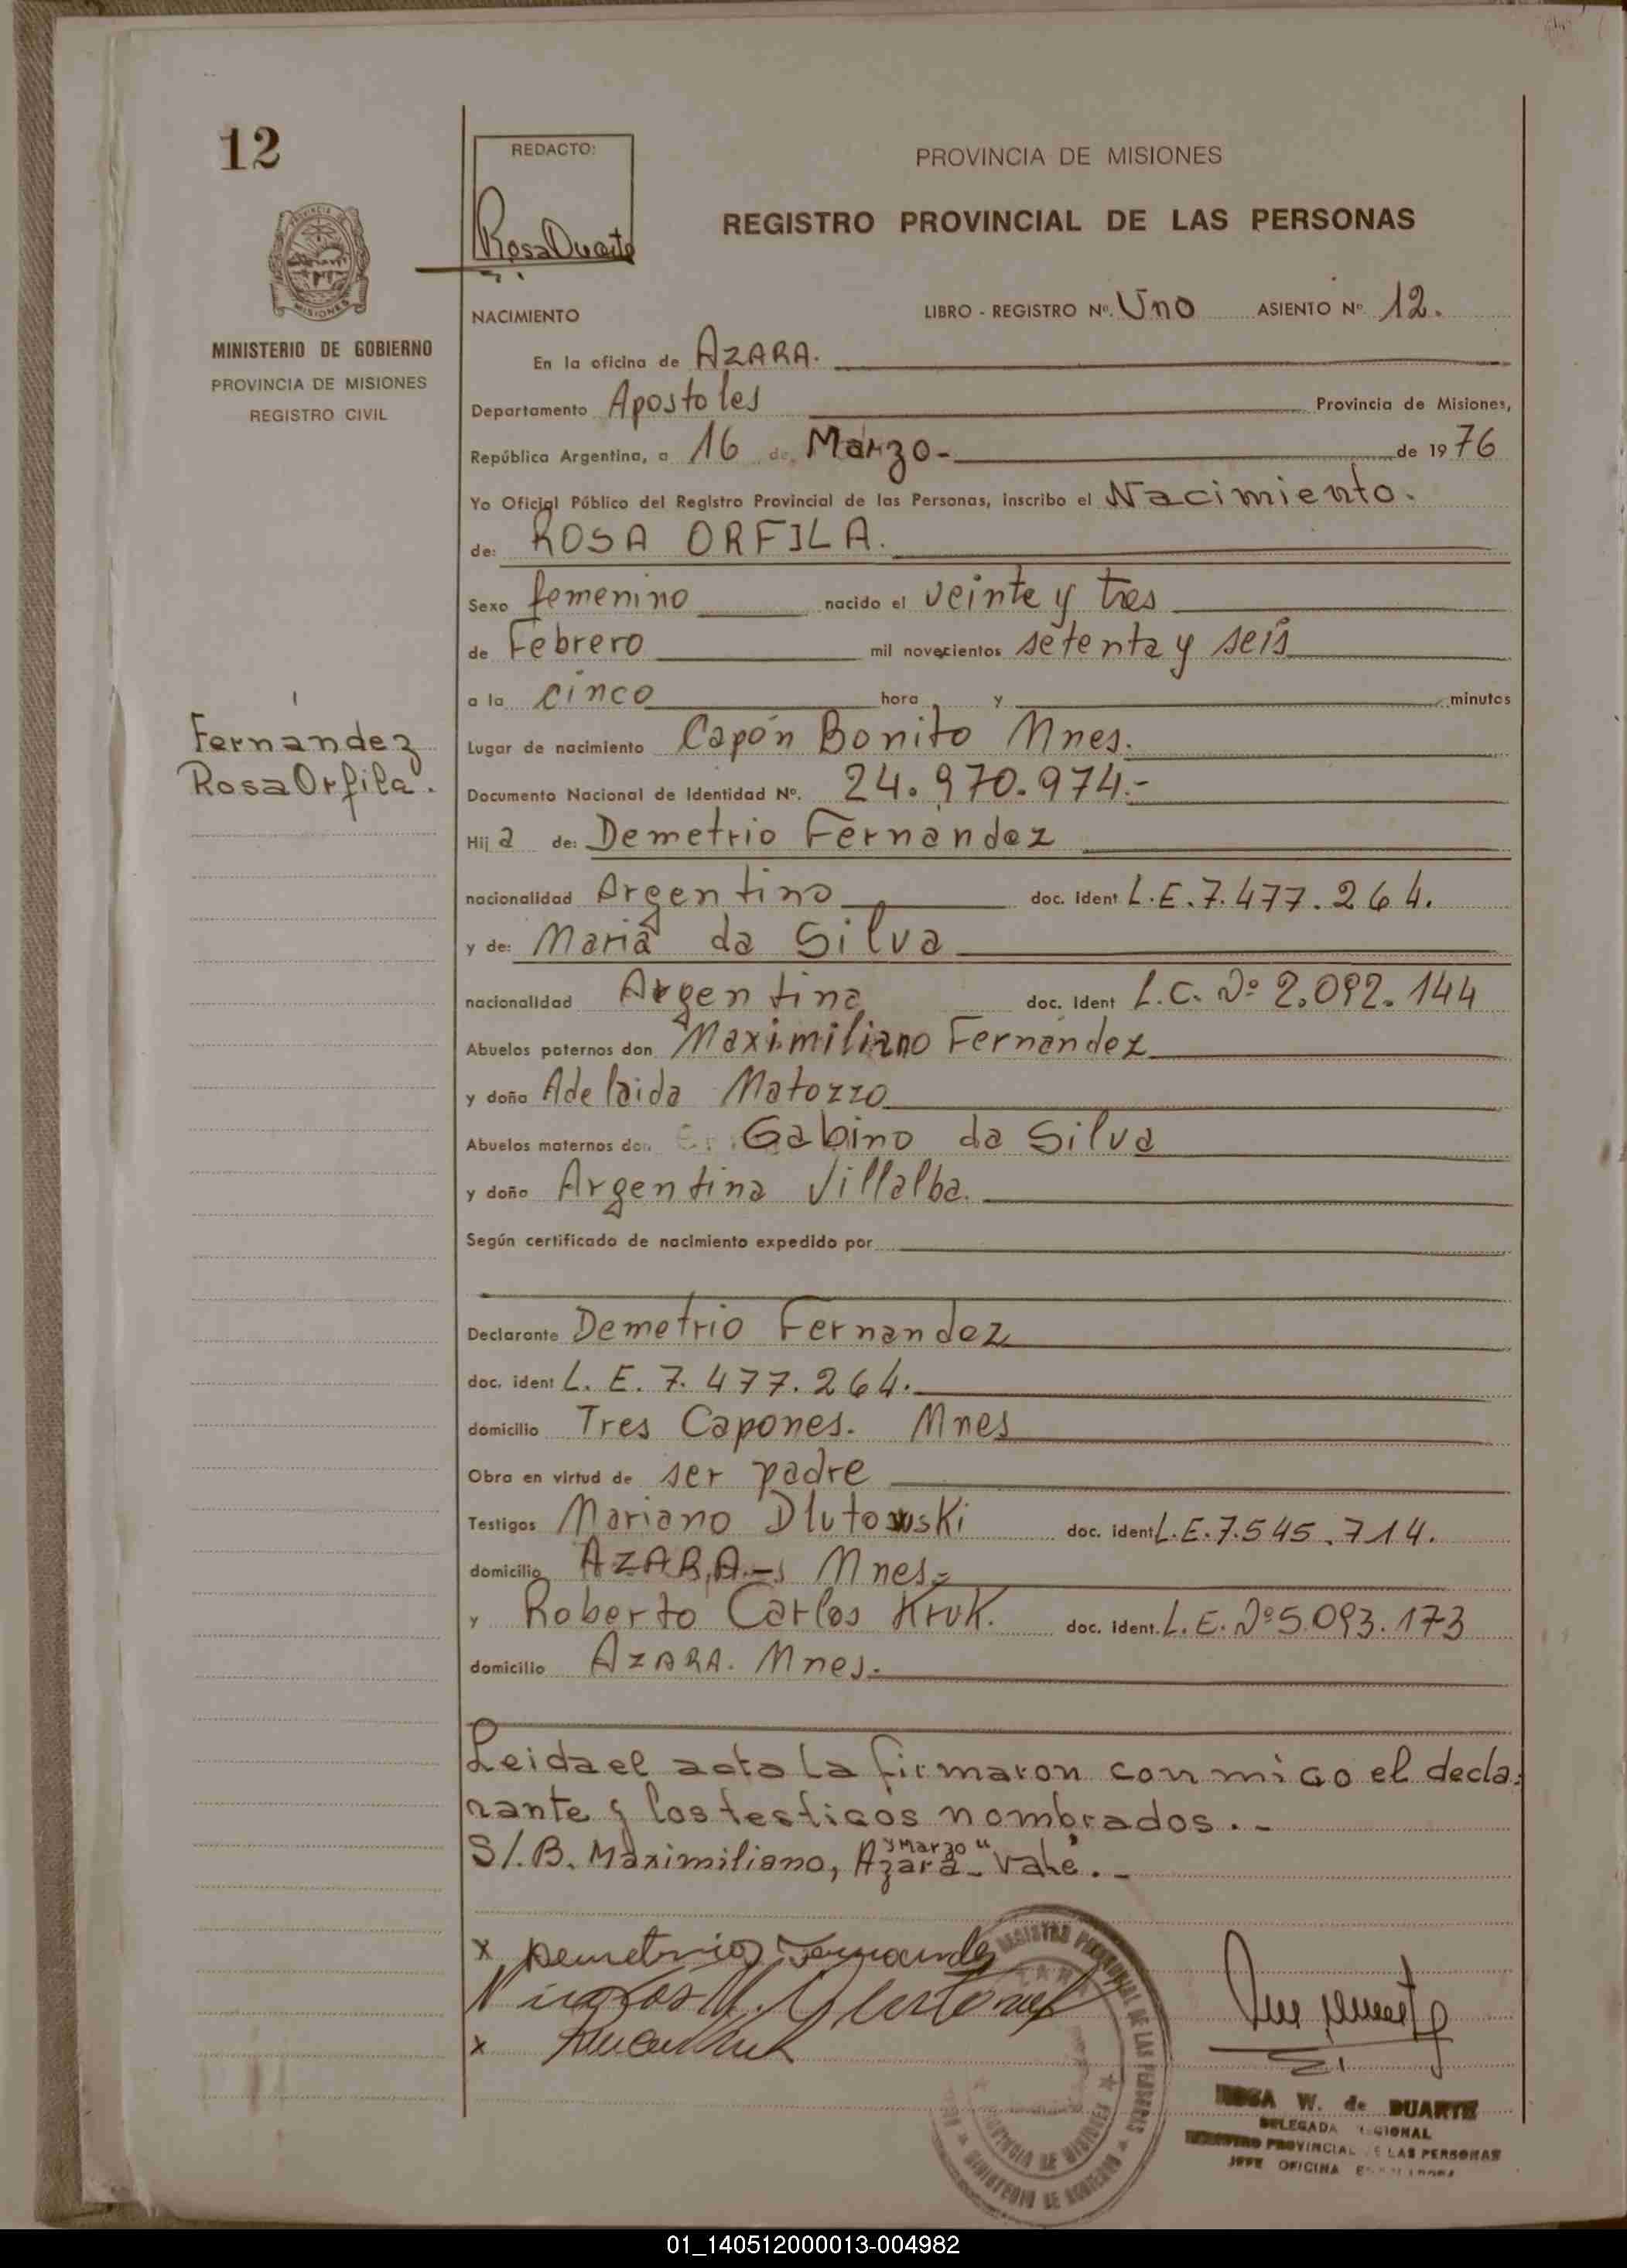 12
REDACTO:
Rosa Duarte
PROVINCIA DE MISIONES
REGISTRO PROVINCIAL DE LAS PERSONAS
MINISTERIO DE GOBIERNO
PROVINCIA DE MISIONES
REGISTRO CIVIL
Fernandez
Rosa Orfila.
NACIMIENTO LIBRO - REGISTRO Nº. Uno ASIENTO Nº 12.
En la oficina de AZARA.
Departamento Apostoles Provincia de Misiones,
República Argentina, a 16 de Marzo- de 1976
Yo Oficial Público del Registro Provincial de las Personas, inscribo el Nacimiento.
de: ROSA ORFILA.
Sexo femenino nacido el veinte y tres
de Febrero mil novecientos setenta y seis
a la cinco hora y minutos
Lugar de nacimiento Capón Bonito Mnes.
Documento Nacional de Identidad Nº. 24.970.974.-
Hija de: Demetrio Fernandez
nacionalidad Argentino doc. Ident L.E.7.477.264.
y de: Maria da Silva
nacionalidad Argentina doc. Ident L.C. Nº 2.092.144
Abuelos paternos don Maximiliano Fernandez
y doña Adelaida Matozzo
Abuelos maternos don Gabino da Silva
y doña Argentina Villalba.
Según certificado de nacimiento expedido por
Declarante Demetrio Fernandez
doc. ident L.E. 7.477.264.
domicilio Tres Capones. Mnes
Obra en virtud de ser padre
Testigos Mariano Dlutowski doc. ident L.E.7.545.714.
domicilio AZARA.- Mnes.-
y Roberto Carlos Kruk. doc. ident. L.E. Nº 5.093.173
domicilio AZARA. Mnes.
Leida el acta la firmaron conmigo el decla-
rante y los testigos nombrados.-
S/.B. Maximiliano, Azara y Marzo" Vale.-
x Demetrio Fernandez
x
REGISTRO PROVINCIAL DE LAS PERSONAS
AZARA
PROVINCIA DE MISIONES
MINISTERIO DE GOBIERNO
ROSA W. de DUARTE
DELEGADA REGIONAL
REGISTRO PROVINCIAL DE LAS PERSONAS
JEFE OFICINA
01_140512000013-004982